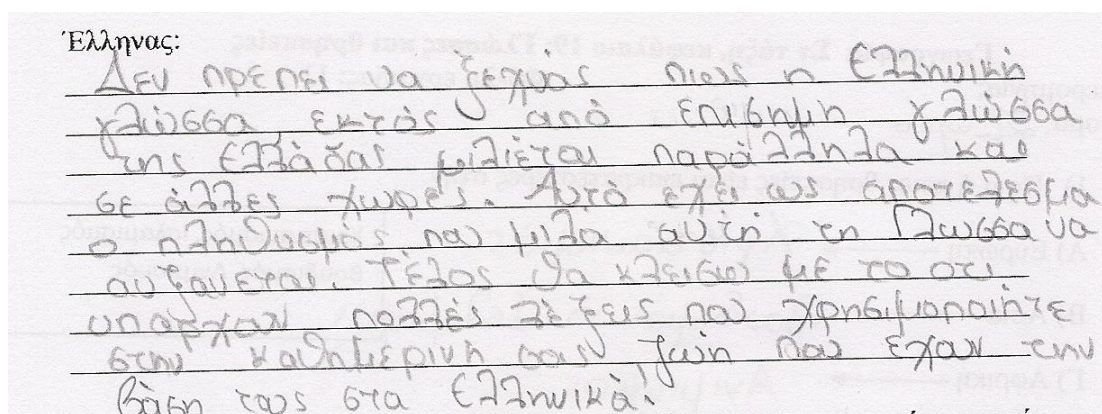 Έλληνας:
Δεν πρέπει να ξεχνάς πως η Ελληνική
γλώσσα, εκτός από επίσημη γλώσσα
της Ελλάδας μιλιέται παράλληλα και
σε άλλες χώρες. Αυτό έχει ως αποτέλεσμα
ο πληθυσμός που μιλά αυτή τη Γλώσσα να
αυξάνεται. Τέλος θα κλείσω με το ότι
υπάρχουν πολλές λέξεις που χρησιμοποιήτε
στην καθημερινή σας ζωή που έχουν την
βάση τους στα Ελληνικά!